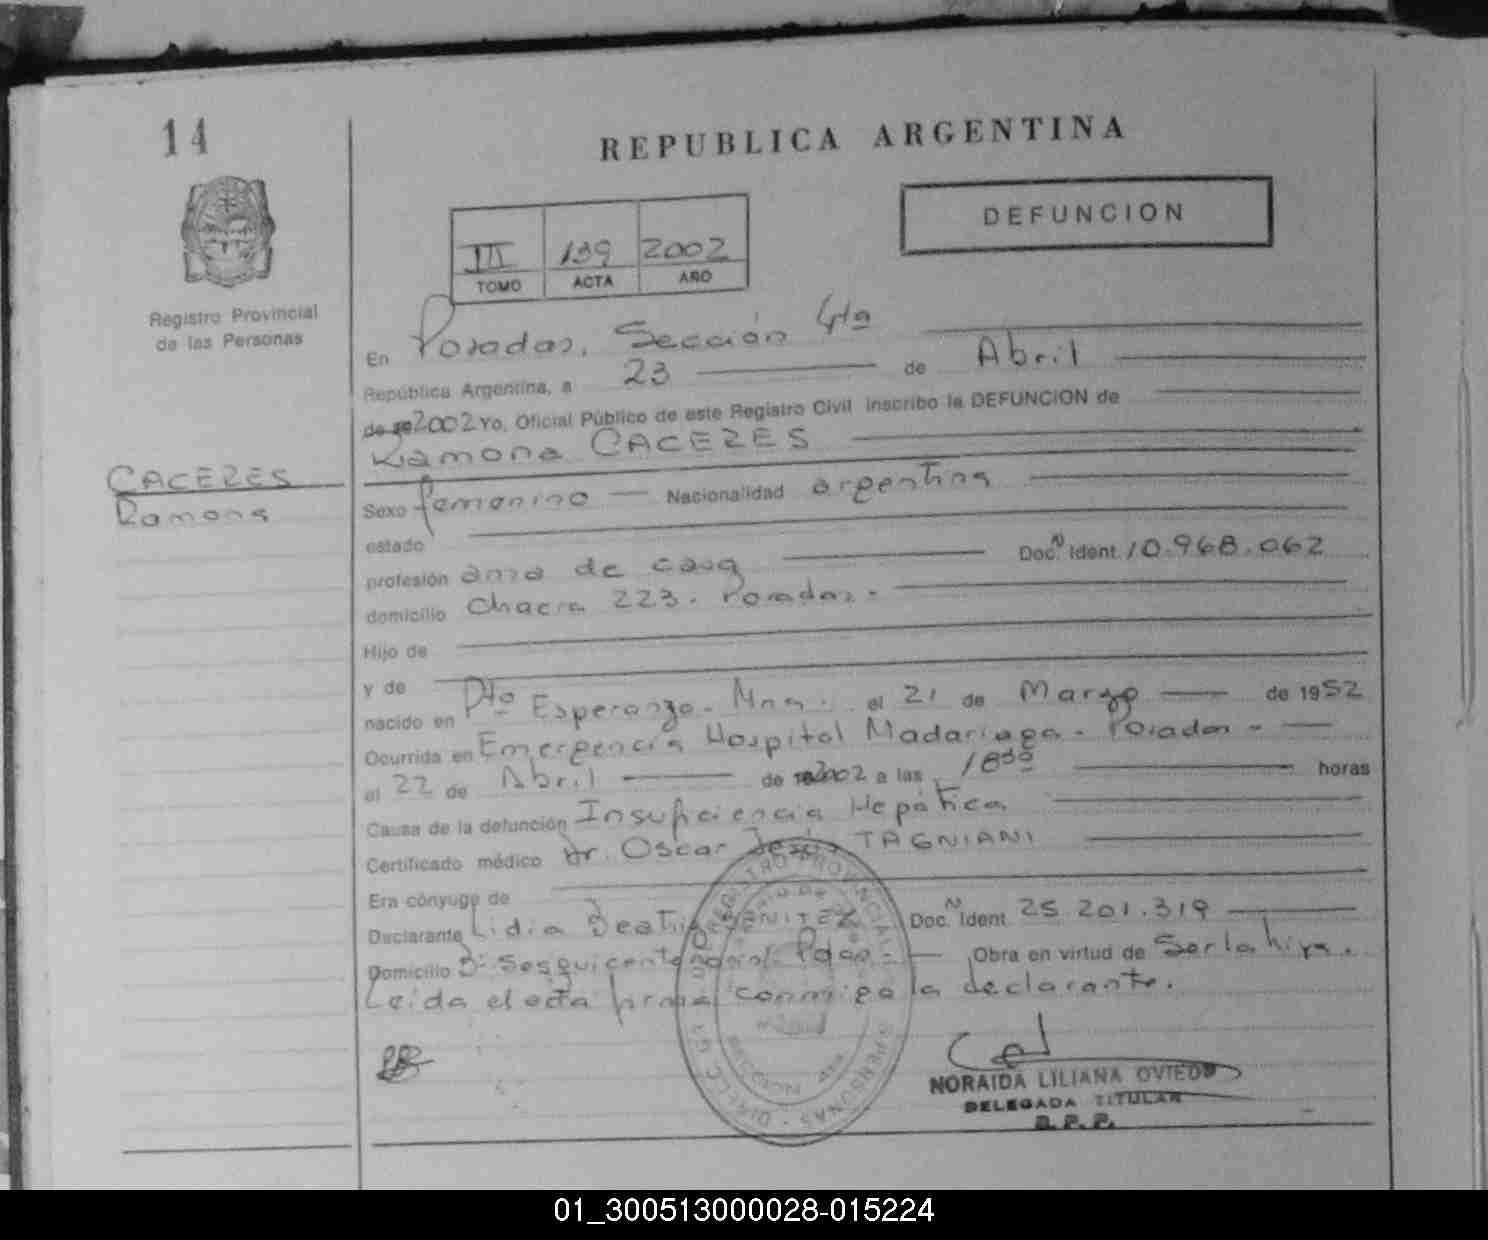 14
REPUBLICA ARGENTINA
DEFUNCION
III 139 2002
TOMO ACTA AÑO
Registro Provincial
de las Personas
En Posadas, Sección 4ta
República Argentina, a 23 de Abril
de 2002 Yo, Oficial Público de este Registro Civil inscribo la DEFUNCION de
Ramona CACERES
CACERES
Ramona
Sexo femenino Nacionalidad argentina
estado
profesión ama de casa Doc. N Ident. 10.968.062
domicilio Chacra 223. Posadas.-
Hijo de
y de
nacido en Pto Esperanza. Mnes. el 21 de Marzo de 1952
Ocurrida en Emergencia Hospital Madariaga - Posadas -
el 22 de Abril de 2002 a las 18 30 horas
Causa de la defunción Insuficiencia Hepática
Certificado médico Dr. Oscar Jesús TAGNIANI
Era cónyuge de
Declarante Lidia Beatriz BENITEZ Doc. N Ident. 25.201.319
Domicilio Bº Sesquicentenario. Pdas.- Obra en virtud de Ser la hija.
Leída el acta firma conmigo la declarante.
REGISTRO PROVINCIAL DE LAS PERSONAS
NORAIDA LILIANA OVIEDO
DELEGADA TITULAR
R.P.P.
01_300513000028-015224